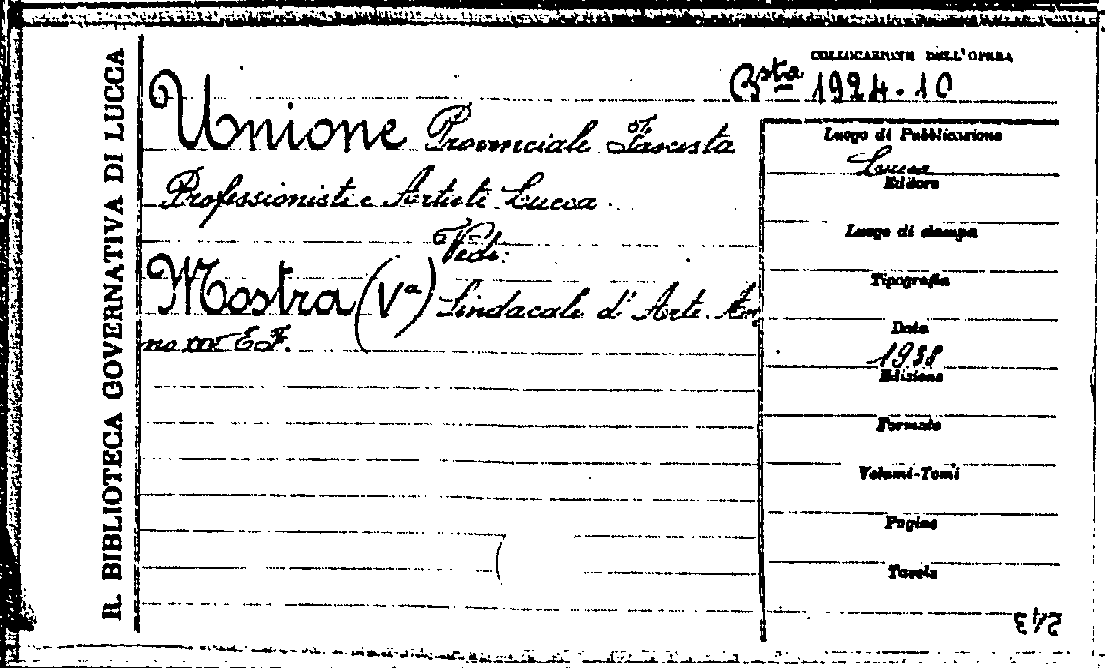 R. BIBLIOTECA GOVERNATIVA DI LUCCA
COLLOCAZIONE DELL'OPERA
Bsta 1924.10
Unione Provinciale Fascista
Professionisti e Artisti Lucca
Vedi:
Mostra (Va) Sindacale d'Arte. An
no XVI E.F.
Luogo di Pubblicazione
Lucca
Editore
Luogo di stampa
Tipografia
Data
1938
Edizione
Formato
Volumi-Tomi
Pagine
Tavole
243